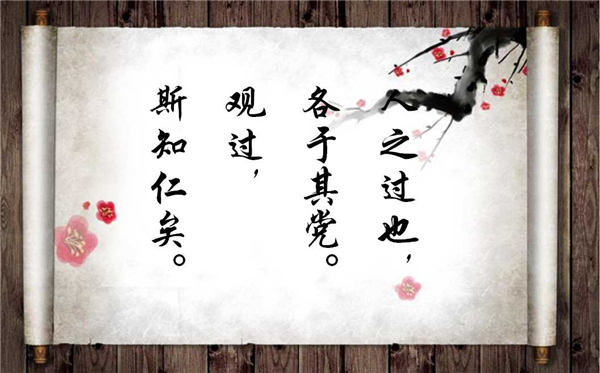 人之过也，
各于其党。
观过，
斯知仁矣。